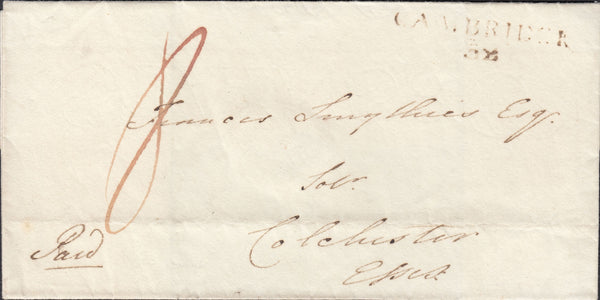 CAMBRIDGE
52
8
Frances Smythies Esqr.
Solr.
Colchester
Essex
Paid